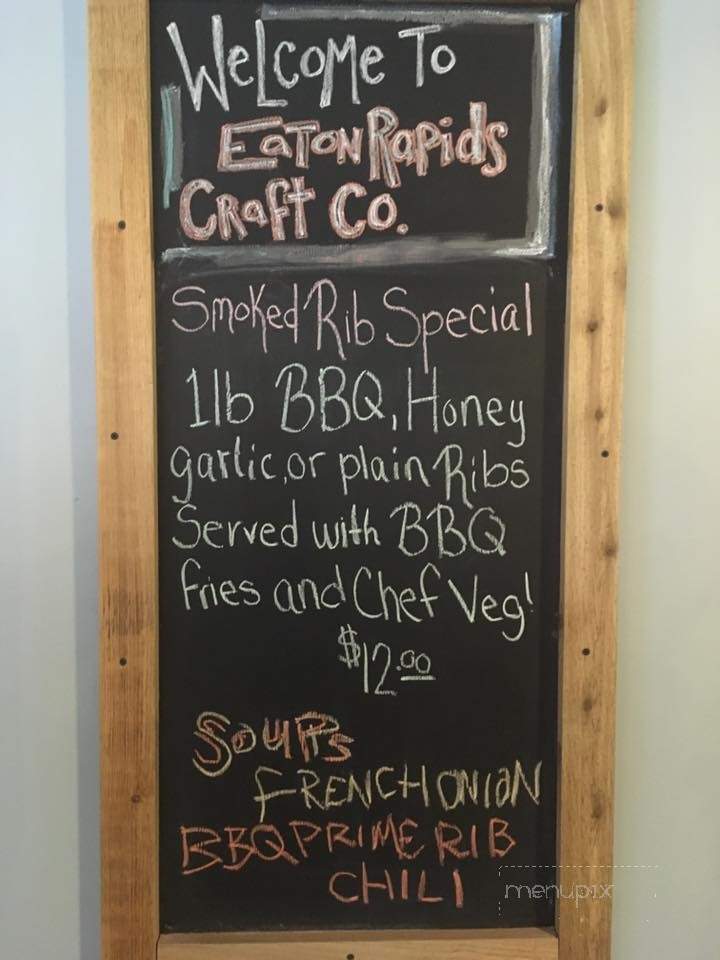 Welcome To
Eaton Rapids
Craft Co.
Smoked Rib Special
1lb BBQ, Honey
garlic, or plain Ribs
Served with BBQ
fries and Chef Veg!
$12.00
Soups
FRENCH ONION
BBQ PRIME RIB
CHILI
menupix